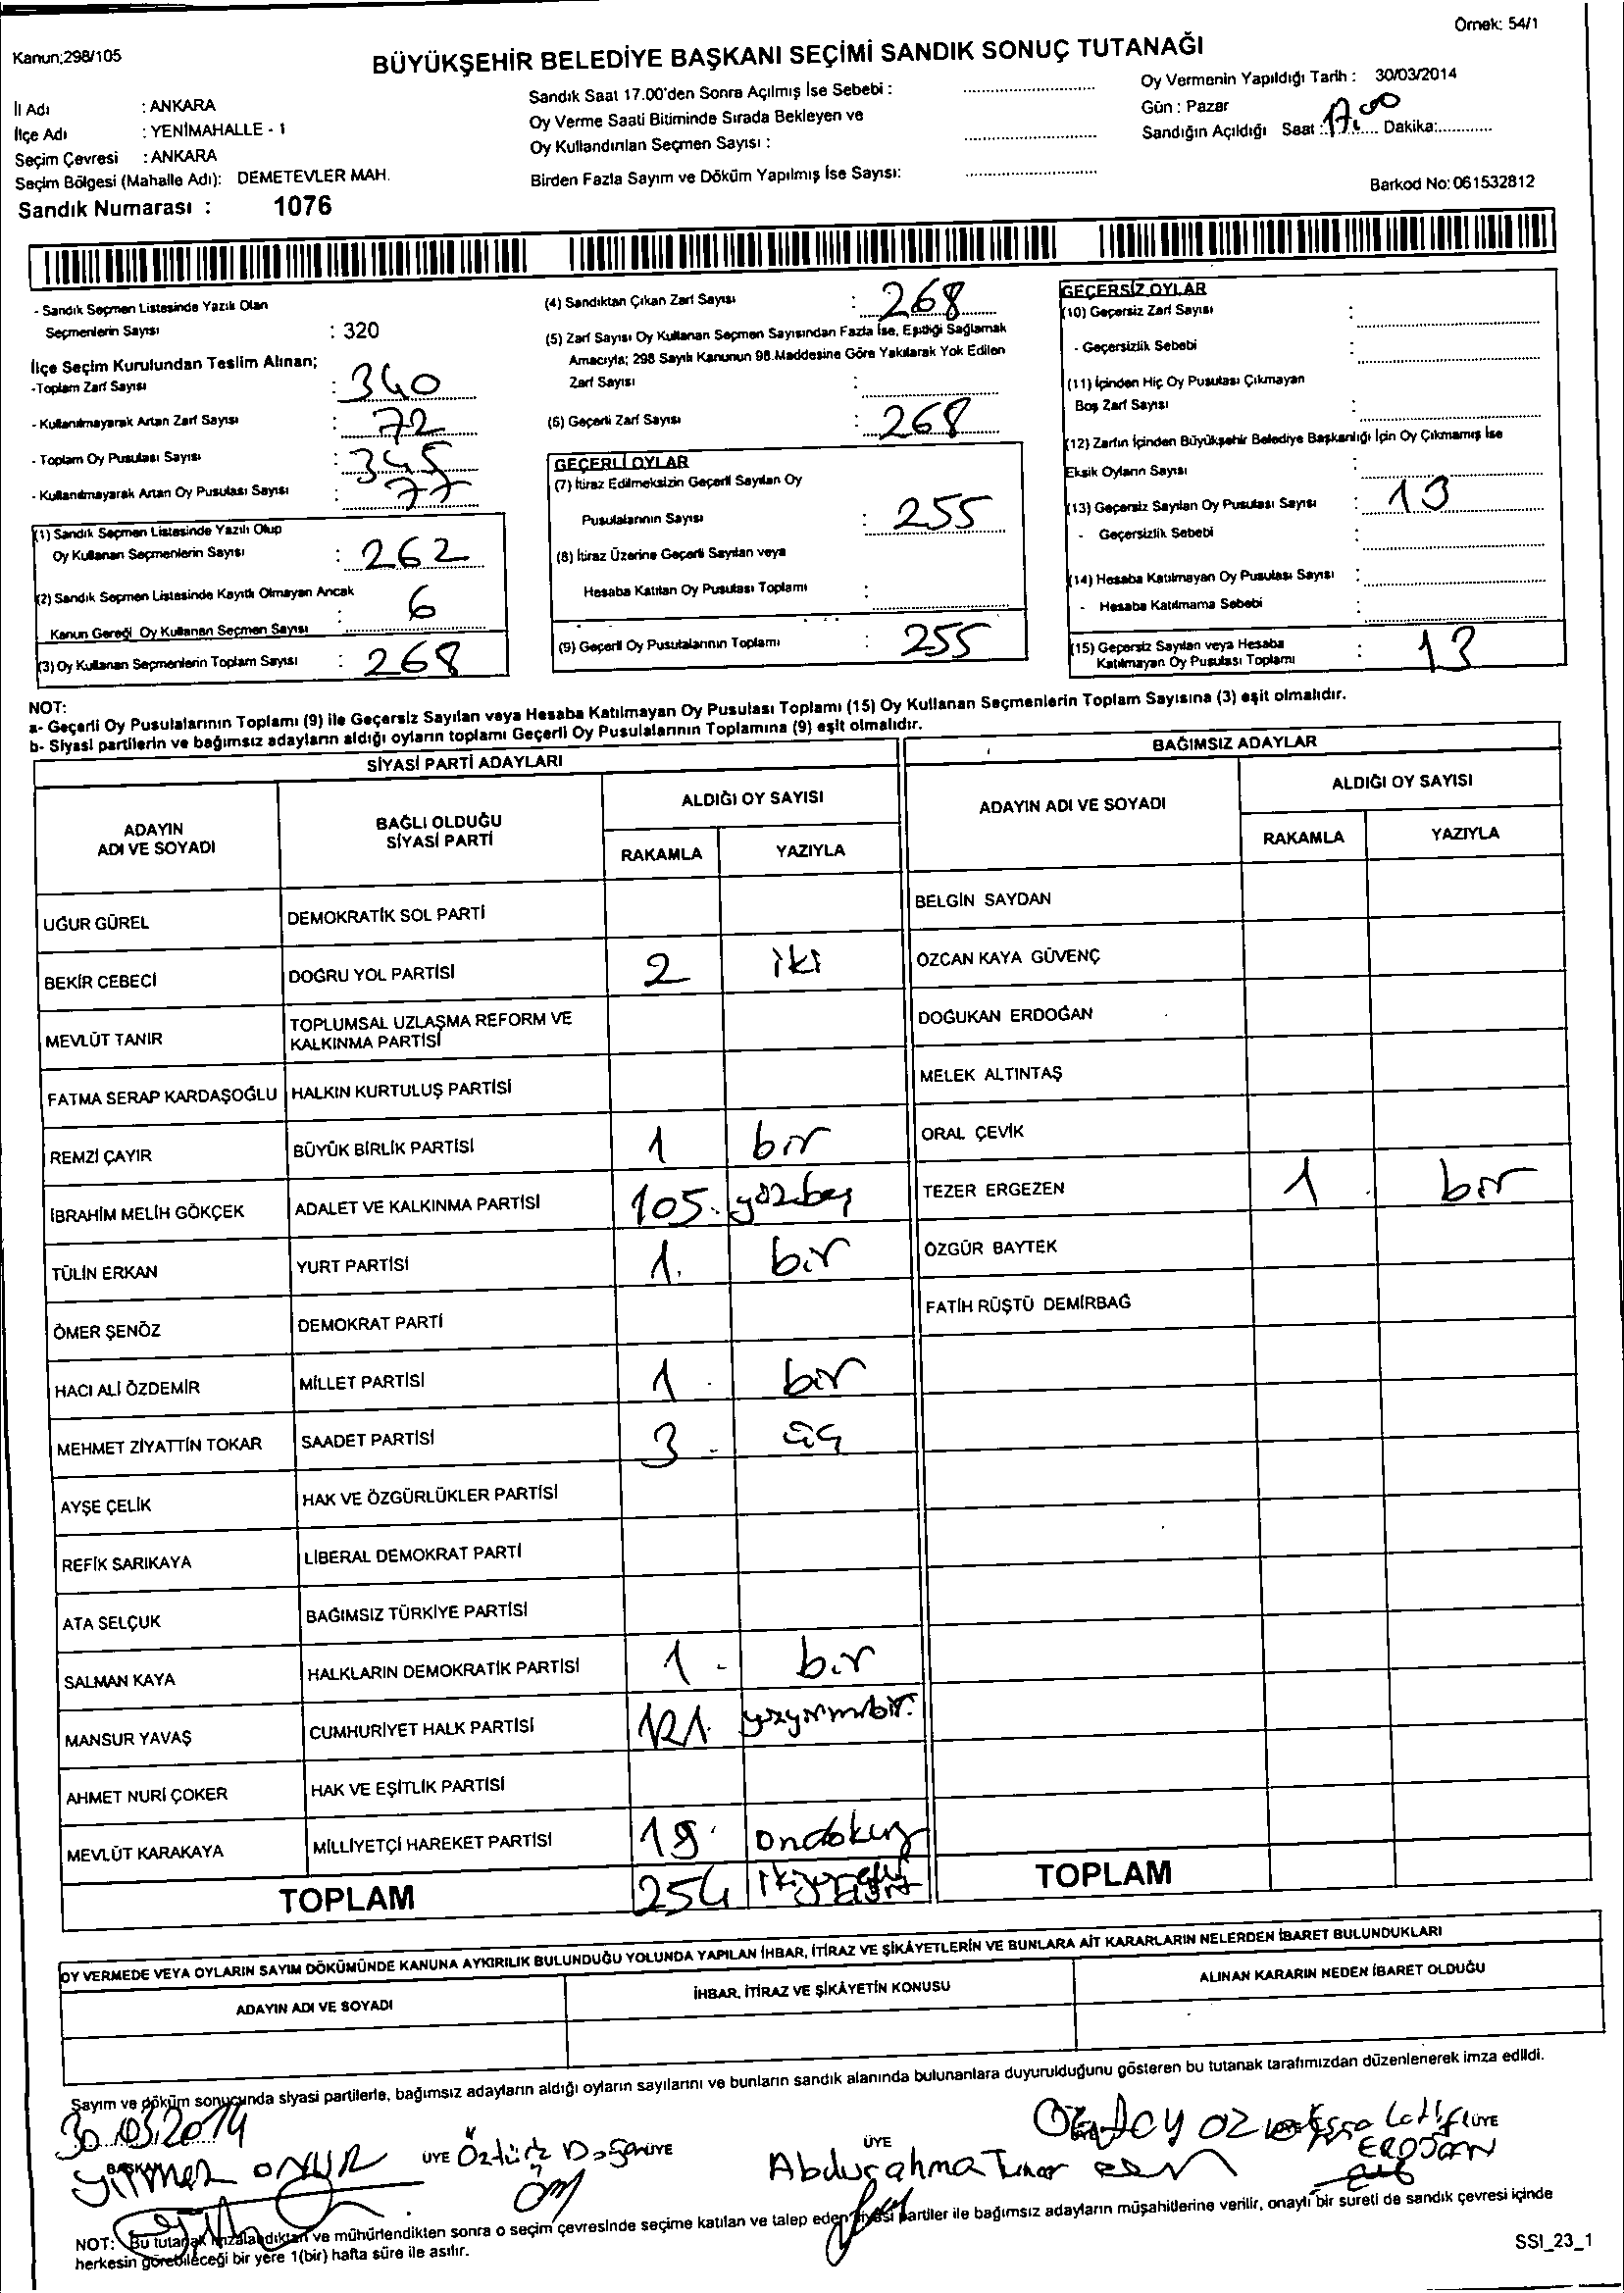 Örnek: 54/1
Kanun;298/105
BÜYÜKŞEHİR BELEDİYE BAŞKANI SEÇİMİ SANDIK SONUÇ TUTANAĞI
İl Adı : ANKARA
İlçe Adı : YENİMAHALLE - 1
Seçim Çevresi : ANKARA
Seçim Bölgesi (Mahalle Adı): DEMETEVLER MAH.
Sandık Numarası : 1076
Sandık Saat 17.00'den Sonra Açılmış İse Sebebi :
Oy Verme Saati Bitiminde Sırada Bekleyen ve
Oy Kullandırılan Seçmen Sayısı :
Birden Fazla Sayım ve Döküm Yapılmış İse Sayısı:
Oy Vermenin Yapıldığı Tarih : 30/03/2014
Gün : Pazar
Sandığın Açıldığı Saat : 17.00 Dakika:
Barkod No: 061532812
- Sandık Seçmen Listesinde Yazılı Olan
Seçmenlerin Sayısı : 320
İlçe Seçim Kurulundan Teslim Alınan;
-Toplam Zarf Sayısı : 340
- Kullanılmayarak Artan Zarf Sayısı : 72
- Toplam Oy Pusulası Sayısı : 345
- Kullanılmayarak Artan Oy Pusulası Sayısı : 77
(1) Sandık Seçmen Listesinde Yazılı Olup
Oy Kullanan Seçmenlerin Sayısı : 262
(2) Sandık Seçmen Listesinde Kayıtlı Olmayan Ancak
Kanun Gereği Oy Kullanan Seçmen Sayısı : 6
(3) Oy Kullanan Seçmenlerin Toplam Sayısı : 268
(4) Sandıktan Çıkan Zarf Sayısı : 268
(5) Zarf Sayısı Oy Kullanan Seçmen Sayısından Fazla İse, Eşitliği Sağlamak
Amacıyla; 298 Sayılı Kanunun 98.Maddesine Göre Yakılarak Yok Edilen
Zarf Sayısı :
(6) Geçerli Zarf Sayısı : 268
GEÇERLİ OYLAR
(7) İtiraz Edilmeksizin Geçerli Sayılan Oy
Pusulalarının Sayısı : 255
(8) İtiraz Üzerine Geçerli Sayılan veya
Hesaba Katılan Oy Pusulası Toplamı :
(9) Geçerli Oy Pusulalarının Toplamı : 255
GEÇERSİZ OYLAR
(10) Geçersiz Zarf Sayısı :
- Geçersizlik Sebebi :
(11) İçinden Hiç Oy Pusulası Çıkmayan
Boş Zarf Sayısı :
(12) Zarfın İçinden Büyükşehir Belediye Başkanlığı İçin Oy Çıkmamış İse
Eksik Oyların Sayısı :
(13) Geçersiz Sayılan Oy Pusulası Sayısı : 13
- Geçersizlik Sebebi :
(14) Hesaba Katılmayan Oy Pusulası Sayısı :
- Hesaba Katılmama Sebebi :
(15) Geçersiz Sayılan veya Hesaba
Katılmayan Oy Pusulası Toplamı : 13
NOT:
a- Geçerli Oy Pusulalarının Toplamı (9) ile Geçersiz Sayılan veya Hesaba Katılmayan Oy Pusulası Toplamı (15) Oy Kullanan Seçmenlerin Toplam Sayısına (3) eşit olmalıdır.
b- Siyasi partilerin ve bağımsız adayların aldığı oyların toplamı Geçerli Oy Pusulalarının Toplamına (9) eşit olmalıdır.
SİYASİ PARTİ ADAYLARI
ADAYIN ADI VE SOYADI
BAĞLI OLDUĞU SİYASİ PARTİ
ALDIĞI OY SAYISI
RAKAMLA YAZIYLA
UĞUR GÜREL DEMOKRATİK SOL PARTİ
BEKİR CEBECİ DOĞRU YOL PARTİSİ 2 iki
MEVLÜT TANIR TOPLUMSAL UZLAŞMA REFORM VE KALKINMA PARTİSİ
FATMA SERAP KARDAŞOĞLU HALKIN KURTULUŞ PARTİSİ
REMZİ ÇAYIR BÜYÜK BİRLİK PARTİSİ 1 bir
İBRAHİM MELİH GÖKÇEK ADALET VE KALKINMA PARTİSİ 105. yüzbeş
TÜLİN ERKAN YURT PARTİSİ 1. bir
ÖMER ŞENÖZ DEMOKRAT PARTİ
HACI ALİ ÖZDEMİR MİLLET PARTİSİ 1 . bir
MEHMET ZİYATTİN TOKAR SAADET PARTİSİ 3 - üç
AYŞE ÇELİK HAK VE ÖZGÜRLÜKLER PARTİSİ
REFİK SARIKAYA LİBERAL DEMOKRAT PARTİ
ATA SELÇUK BAĞIMSIZ TÜRKİYE PARTİSİ
SALMAN KAYA HALKLARIN DEMOKRATİK PARTİSİ 1 - bir
MANSUR YAVAŞ CUMHURİYET HALK PARTİSİ 121. yüzyirmibir.
AHMET NURİ ÇOKER HAK VE EŞİTLİK PARTİSİ
MEVLÜT KARAKAYA MİLLİYETÇİ HAREKET PARTİSİ 19 ondokuz
TOPLAM 254
BAĞIMSIZ ADAYLAR
ADAYIN ADI VE SOYADI
ALDIĞI OY SAYISI
RAKAMLA YAZIYLA
BELGİN SAYDAN
ÖZCAN KAYA GÜVENÇ
DOĞUKAN ERDOĞAN
MELEK ALTINTAŞ
ORAL ÇEVİK
TEZER ERGEZEN 1 . bir
ÖZGÜR BAYTEK
FATİH RÜŞTÜ DEMİRBAĞ
TOPLAM
OY VERMEDE VEYA OYLARIN SAYIM DÖKÜMÜNDE KANUNA AYKIRILIK BULUNDUĞU YOLUNDA YAPILAN İHBAR, İTİRAZ VE ŞİKÂYETLERİN VE BUNLARA AİT KARARLARIN NELERDEN İBARET BULUNDUKLARI
ADAYIN ADI VE SOYADI İHBAR, İTİRAZ VE ŞİKÂYETİN KONUSU ALINAN KARARIN NEDEN İBARET OLDUĞU
Sayım ve döküm sonucunda siyasi partilerle, bağımsız adayların aldığı oyların sayılarını ve bunların sandık alanında bulunanlara duyurulduğunu gösteren bu tutanak tarafımızdan düzenlenerek imza edildi.
30.03.2014
BAŞKAN ONUR ÜYE Öztürk ÜYE ÜYE Abdurahman ÜYE
ERDOĞAN
NOT: Bu tutanak imzalandıktan ve mühürlendikten sonra o seçim çevresinde seçime katılan ve talep eden siyasi partiler ile bağımsız adayların müşahitlerine verilir, onaylı bir sureti de sandık çevresi içinde
herkesin görebileceği bir yere 1(bir) hafta süre ile asılır.
SSI_23_1